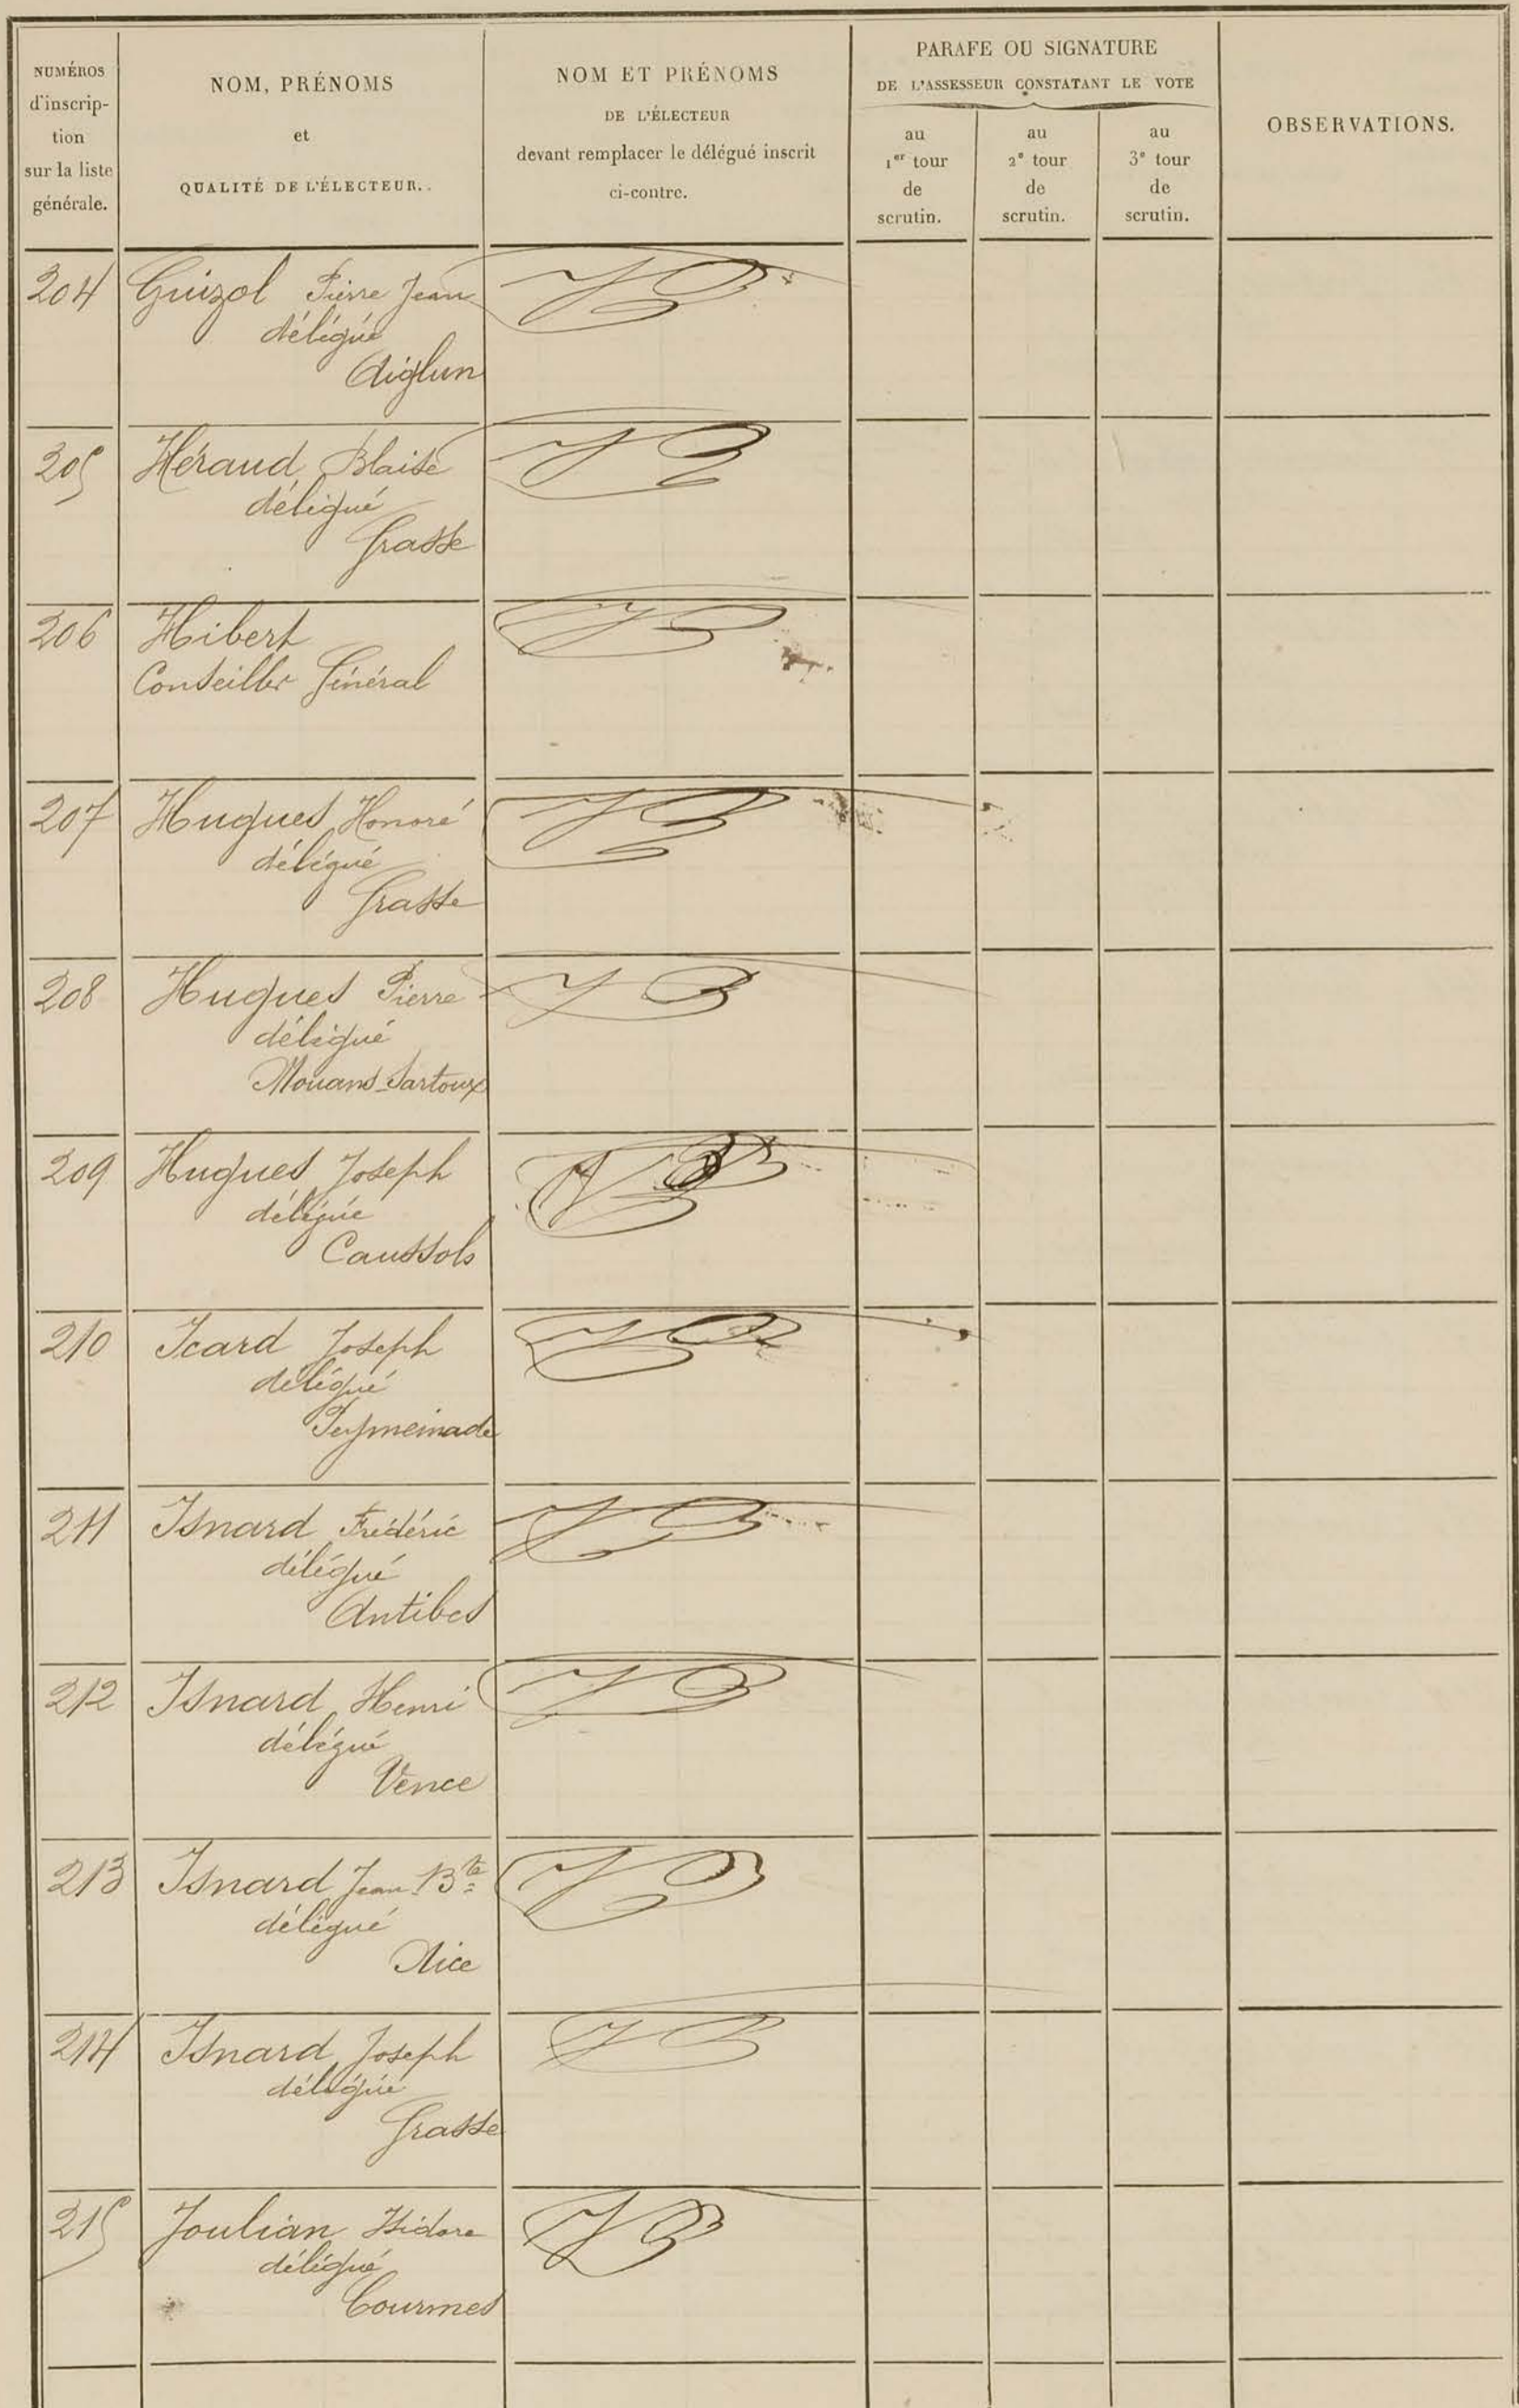 NUMÉROS
d'inscrip-
tion
sur la liste
générale.
NOM, PRÉNOMS
et
QUALITÉ DE L'ÉLECTEUR.
NOM ET PRÉNOMS
DE L'ÉLECTEUR
devant remplacer le délégué inscrit
ci-contre.
PARAFE OU SIGNATURE
DE L'ASSESSEUR CONSTATANT LE VOTE
au
1er tour
de
scrutin.
au
2e tour
de
scrutin.
au
3e tour
de
scrutin.
OBSERVATIONS.
204 Guizol Pierre Jean
délégué
Aiglun
205 Héraud Blaise
délégué
Grasse
206 Hibert
Conseiller Général
207 Hugues Honoré
délégué
Grasse
208 Hugues Pierre
délégué
Mouans-Sartoux
209 Hugues Joseph
délégué
Caussols
210 Icard Joseph
délégué
Peymeinade
211 Isnard Frédéric
délégué
Antibes
212 Isnard Henri
délégué
Vence
213 Isnard Jean Bte
délégué
Nice
214 Isnard Joseph
délégué
Grasse
215 Joulian Isidore
délégué
Courmes